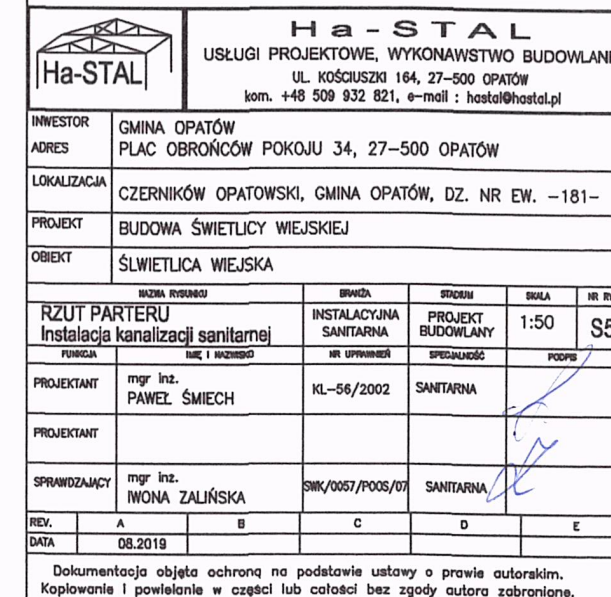 Ha-STAL
Ha-STAL
USŁUGI PROJEKTOWE, WYKONAWSTWO BUDOWLANE
UL. KOŚCIUSZKI 164, 27-500 OPATÓW
kom. +48 509 932 821, e-mail : hastal@hastal.pl
INWESTOR GMINA OPATÓW
ADRES PLAC OBROŃCÓW POKOJU 34, 27-500 OPATÓW
LOKALIZACJA CZERNIKÓW OPATOWSKI, GMINA OPATÓW, DZ. NR EW. -181-
PROJEKT BUDOWA ŚWIETLICY WIEJSKIEJ
OBIEKT ŚLWIETLICA WIEJSKA
NAZWA RYSUNKU BRANŻA STADIUM SKALA NR RY
RZUT PARTERU INSTALACYJNA PROJEKT 1:50 S5
Instalacja kanalizacji sanitarnej SANITARNA BUDOWLANY
FUNKCJA IMIĘ I NAZWISKO NR UPRAWNIEŃ SPECJALNOŚĆ PODPIS
PROJEKTANT mgr inż. KL-56/2002 SANITARNA
PAWEŁ ŚMIECH
PROJEKTANT
SPRAWDZAJĄCY mgr inż. SWK/0057/POOS/07 SANITARNA
IWONA ZALIŃSKA
REV. A B C D E
DATA 08.2019
Dokumentacja objęta ochroną na podstawie ustawy o prawie autorskim.
Kopiowanie i powielanie w części lub całości bez zgody autora zabronione.